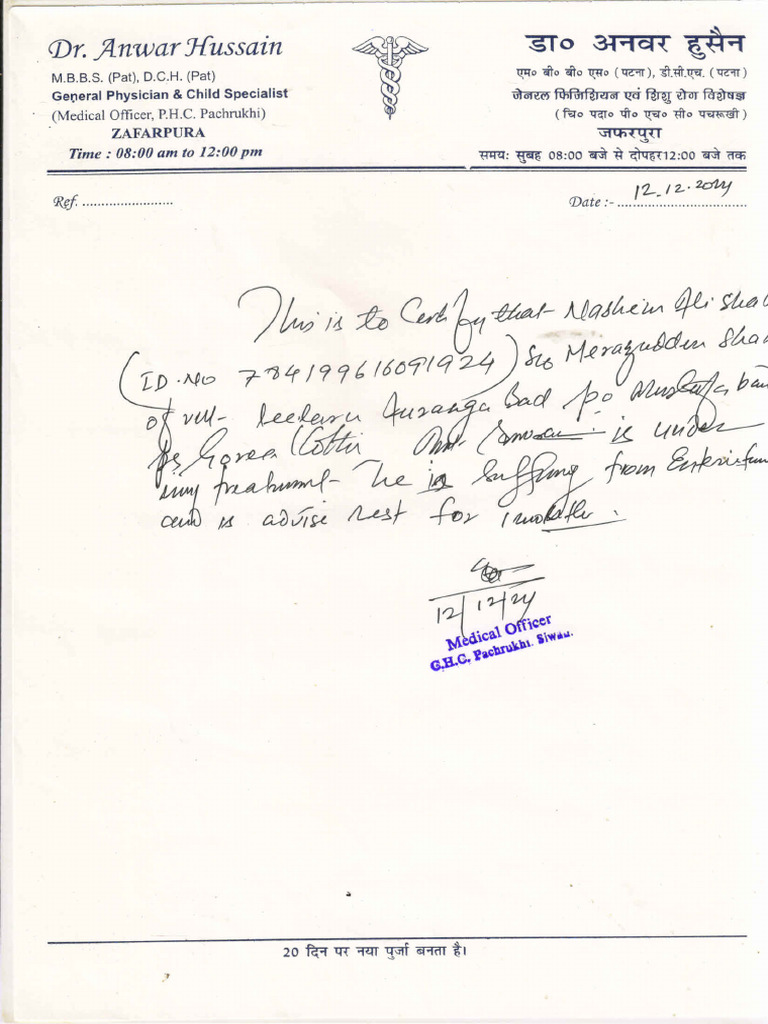 Dr. Anwar Hussain
M.B.B.S. (Pat), D.C.H. (Pat)
General Physician & Child Specialist
(Medical Officer, P.H.C. Pachrukhi)
ZAFARPURA
Time : 08:00 am to 12:00 pm
डा० अनवर हुसैन
एम० बी० बी० एस० ( पटना ), डी.सी.एच. ( पटना )
जेनरल फिजिशियन एवं शिशु रोग विशेषज्ञ
( चि० पदा० पी० एच० सी० पचरूखी )
जफरपुरा
समय: सुबह 08:00 बजे से दोपहर12:00 बजे तक
Ref. ........................
Date :- 12.12.2024
This is to Certify that Nashein Ali Shah
(ID.NO 784199616091924) S/o Merazuddin Sha
of vill- Auranga Bad P.o Mustafa
Ps Gorea Kothi is under
my treatment- He is Suffering from
and is advise rest for 1 month.
12/12/24
Medical Officer
C.H.C. Pachrukhi. Siwan.
20 दिन पर नया पुर्जा बनता है।